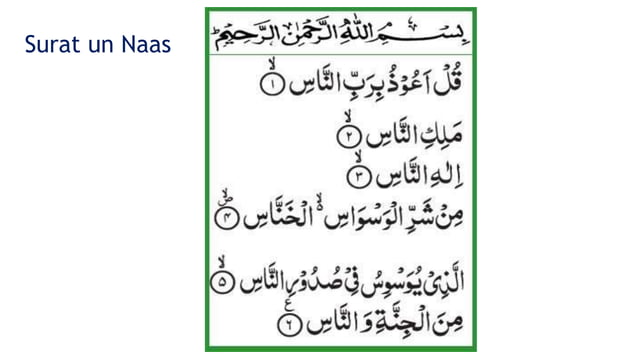 Surat un Naas
بِسْمِ اللهِ الرَّحْمٰنِ الرَّحِيْمِ ط
قُلْ اَعُوْذُ بِرَبِّ النَّاسِ ۙ﴿۱﴾
مَلِكِ النَّاسِ ۙ﴿۲﴾
اِلٰهِ النَّاسِ ۙ﴿۳﴾
مِنْ شَرِّ الْوَسْوَاسِ ۙ الْخَنَّاسِ ۙ ص ﴿۴﴾
الَّذِيْ يُوَسْوِسُ فِيْ صُدُوْرِ النَّاسِ ۙ﴿۵﴾
مِنَ الْجِنَّةِ وَ النَّاسِ ع ﴿۶﴾